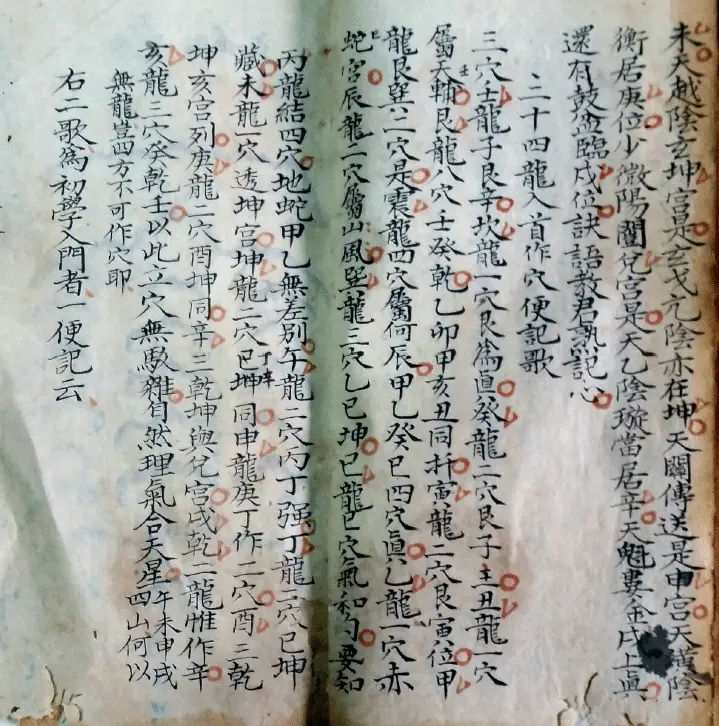 未天越陰玄坤宮是玄戈亢陰亦在坤天關傳送是申宮天潢陰
衡居庚位少微陽闔兌宮是天乙陰璇當居辛天魁婁金戌上眞
還有鼓盆臨戌位訣語教君熟記心
二十四龍入首作穴便記歌
三穴壬龍子艮辛坎龍一穴艮爲眞癸龍二穴艮子主丑龍一穴
屬天輔艮龍八穴壬癸乾乙卯甲亥丑同扦寅龍二穴艮寅位甲
龍艮巽二穴是震龍四穴屬何辰甲乙癸巳四穴眞乙龍一穴赤
蛇宮辰龍二穴屬山風巽龍三穴乙巳坤巳龍巳穴氣和勻要知
丙龍結四穴地蛇甲乙無差別午龍二穴丙丁强丁龍二穴巳坤
藏未龍一穴透坤宮坤龍二穴巳坤同申龍庚丁作二穴酉三乾
坤亥宮列庚龍二穴酉坤同辛三乾坤與兌宮戌乾二龍惟作辛
亥龍三穴癸乾壬以此立穴無駁雜自然理氣合天星午未申戌四山何以
無龍豈四方不可作穴耶
右二歌爲初學入門者一便記云